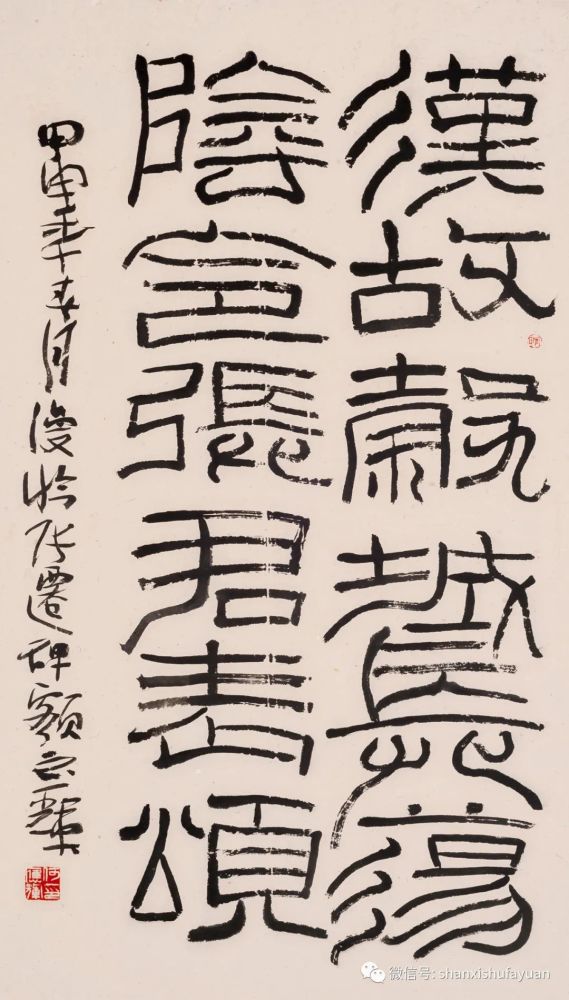 漢故穀城長蕩
陰令張君表頌
甲申年春月漫臨张遷碑額
微信号: shanxishufayuan